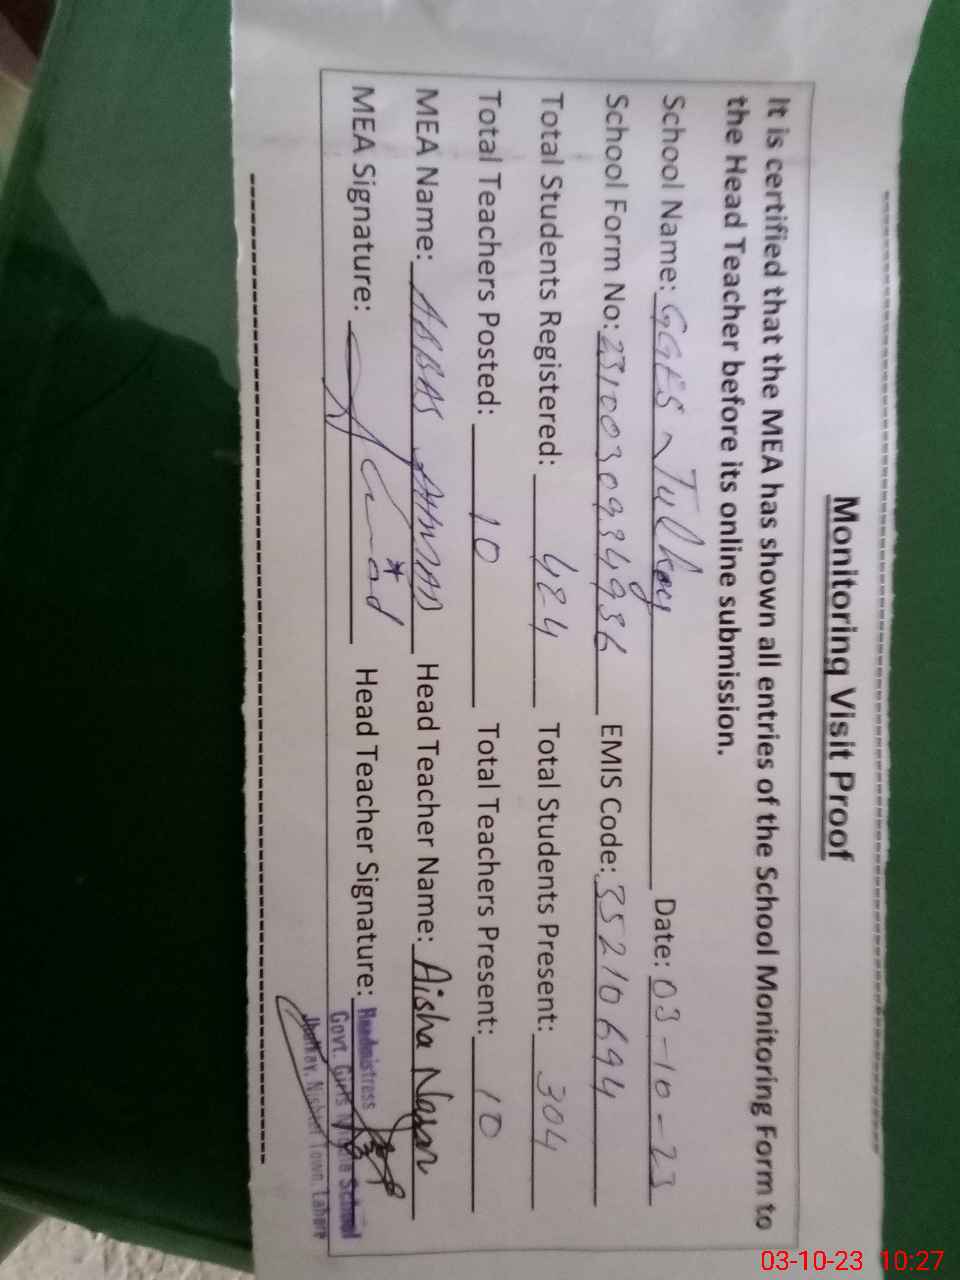 Monitoring Visit Proof
It is certified that the MEA has shown all entries of the School Monitoring Form to
the Head Teacher before its online submission.
School Name: GGES Julkay Date: 03-10-23
School Form No: 2310030934936 EMIS Code: 35210694
Total Students Registered: 424 Total Students Present: 304
Total Teachers Posted: 10 Total Teachers Present: 10
MEA Name: ABBAS AHMAD Head Teacher Name: Aisha
MEA Signature: Head Teacher Signature:
Headmistress
Govt. Girls School
Town, Lahore
03-10-23 10:27